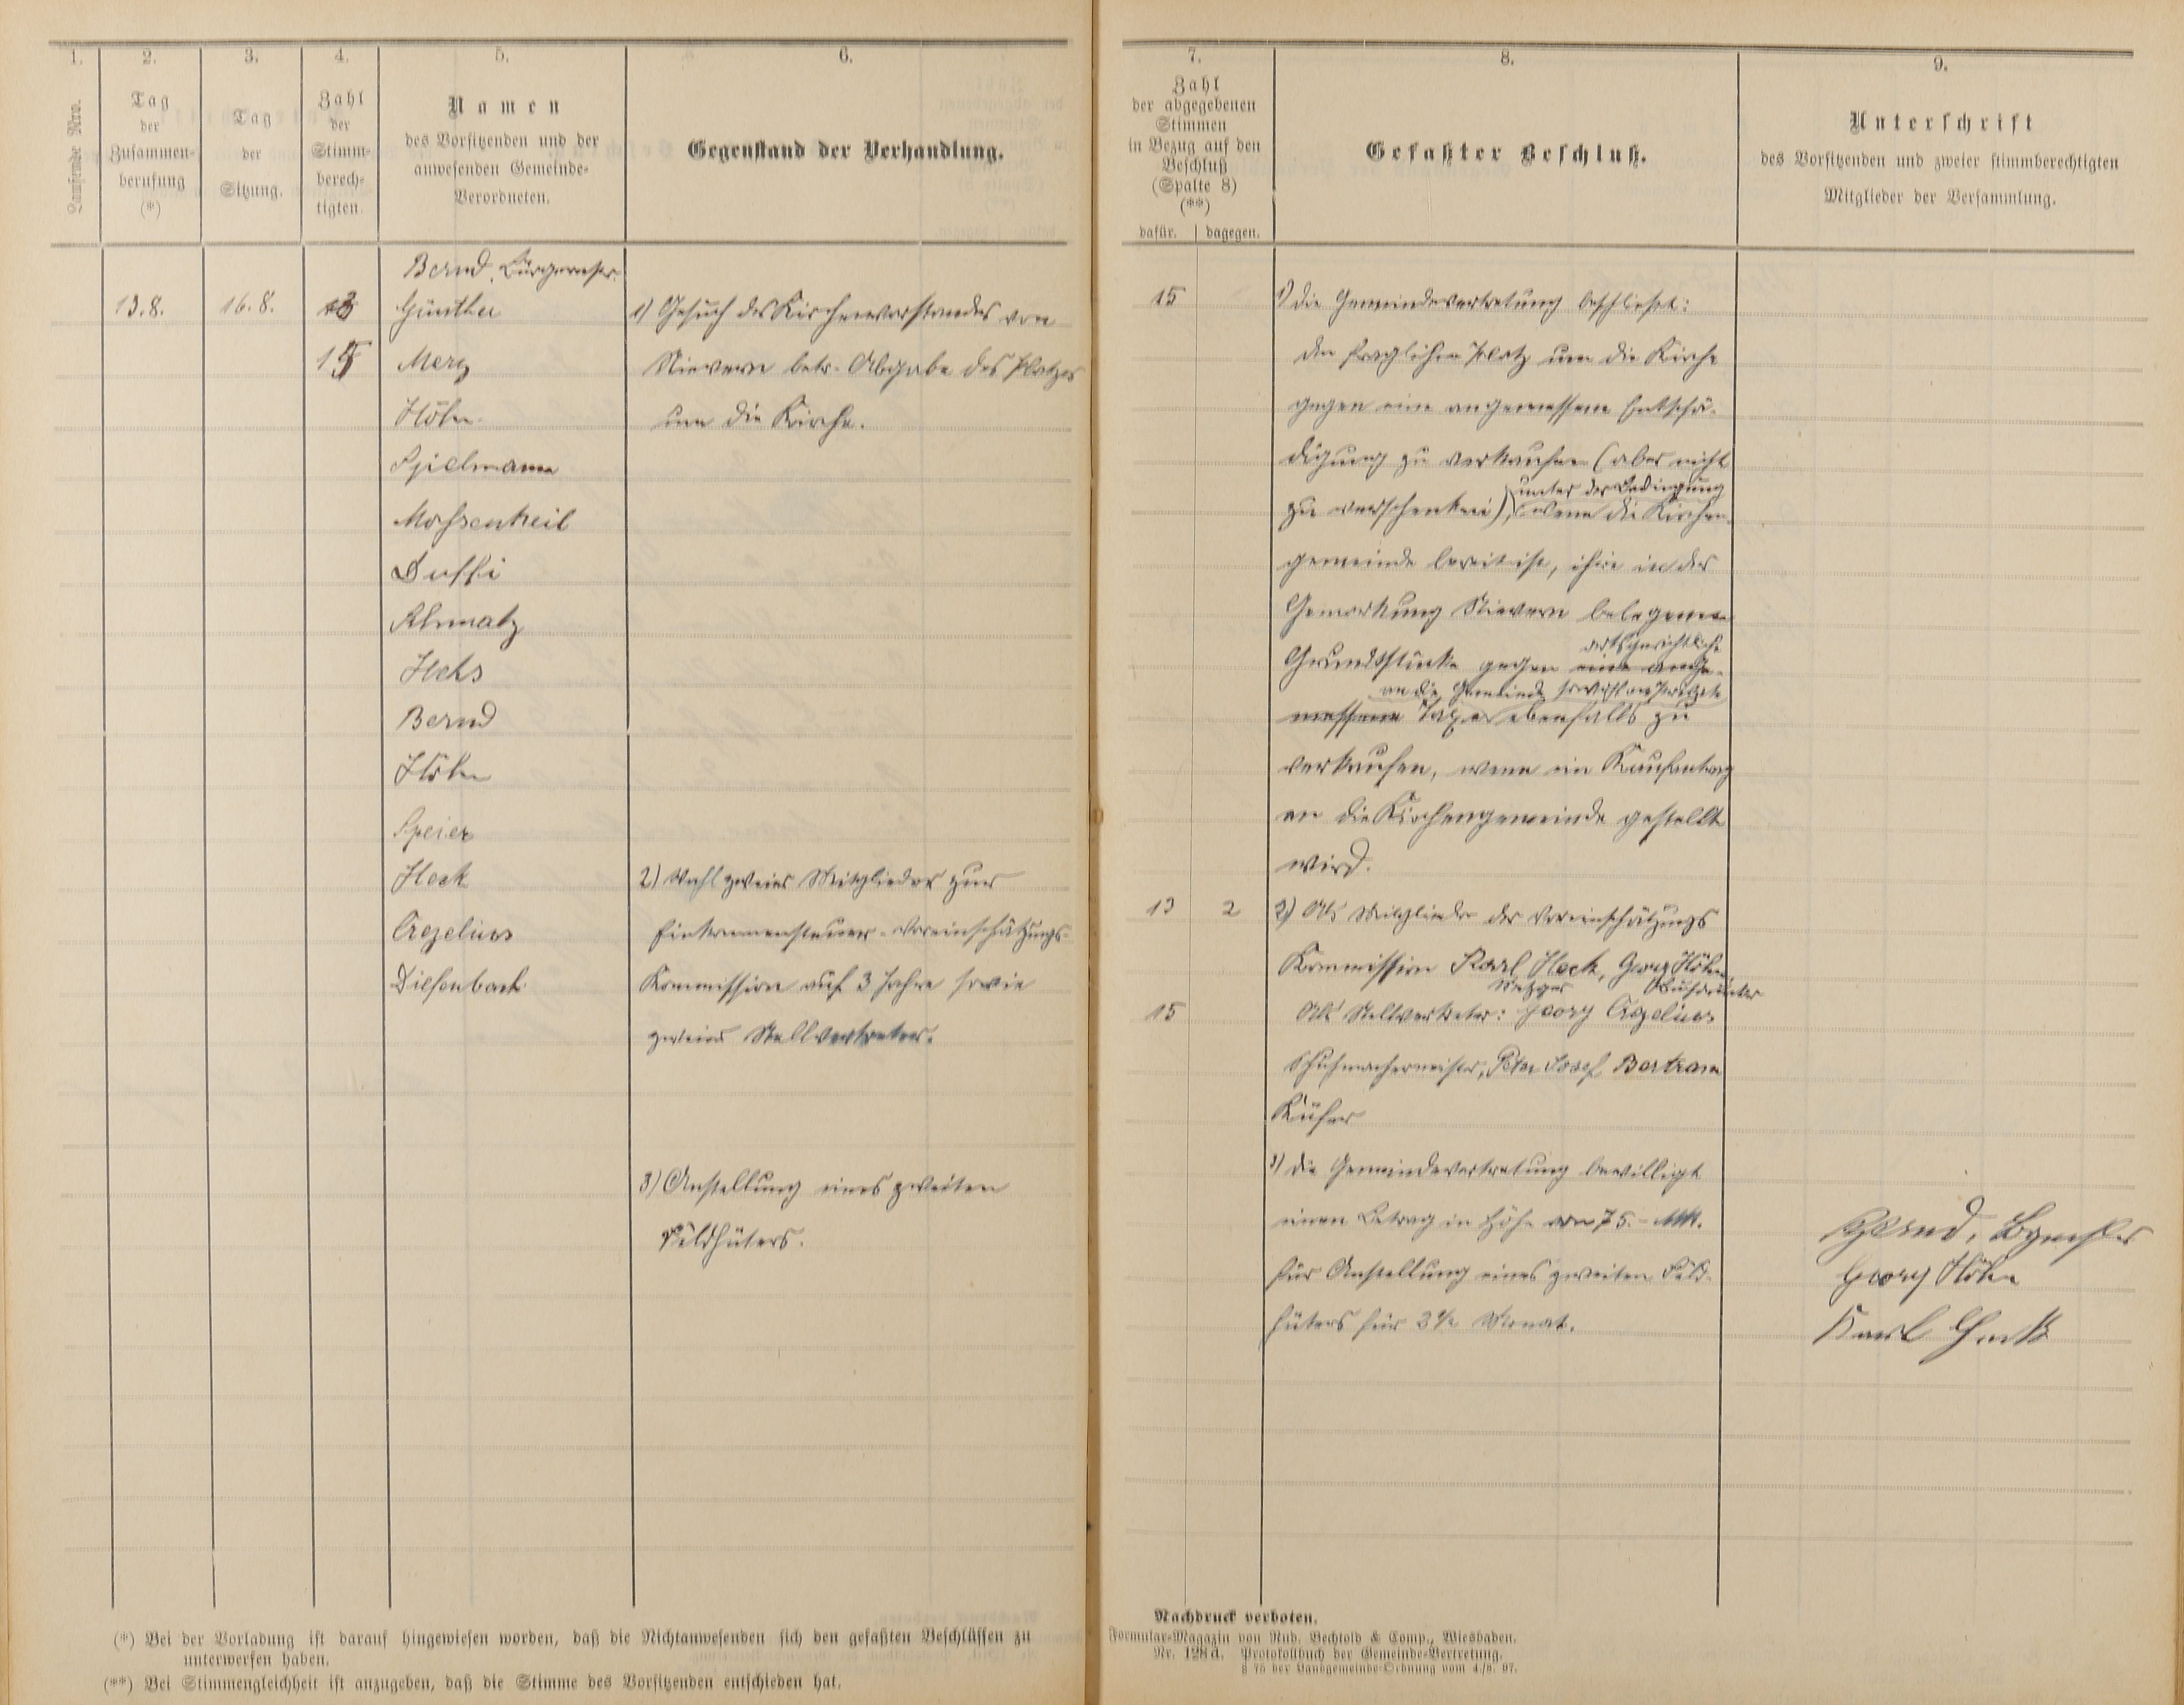 1.
Laufende Nro.
2.
Tag
der
Zusammen-
berufung
(*)
3.
Tag
der
Sitzung.
4.
Zahl
der
Stimm-
berech-
tigten.
5.
Namen
des Vorsitzenden und der
anwesenden Gemeinde-
Verordneten.
6.
Gegenstand der Verhandlung.
13.8.
16.8.
13
15
Bernd, Bürgermstr.
Günther
Merz
Höhn
Spielmann
Massenkeil
Duffi
Hehs
Bernd
Höhn
Speier
Heck
Crezelius
Diefenbach
1) Gesuch des Kirchenvorstandes von
Nievern betr. Abgabe des Platzes
um die Kirche.
2) Wahl zweier Mitglieder zur
Einkommensteuer-Voreinschätzungs-
Kommission auf 3 Jahre sowie
zweier Stellvertreter.
3) Anstellung eines zweiten
Feldhüters.
(*) Bei der Vorladung ist darauf hingewiesen worden, daß die Nichtanwesenden sich den gefaßten Beschlüssen zu
unterwerfen haben.
(**) Bei Stimmengleichheit ist anzugeben, daß die Stimme des Vorsitzenden entschieden hat.
7.
Zahl
der abgegebenen
Stimmen
in Bezug auf den
Beschluß
(Spalte 8)
(**)
dafür. dagegen.
8.
Gefaßter Beschluß.
9.
Unterschrift
des Vorsitzenden und zweier stimmberechtigten
Mitglieder der Versammlung.
15
1) Die Gemeindevertretung beschließt:
den fraglichen Platz um die Kirche
gegen eine angemessene Entschä-
digung zu verkaufen (aber nicht
unter der Bedingung
zu verschenken), wenn die Kirchen-
gemeinde bereit ist, ihre in der
Gemarkung Nievern belegenen
ortsgerichtliche
Grundstücke gegen eine ange-
an die Gemeinde sowohl an Private
messene Taxe ebenfalls zu
verkaufen, wenn ein Kaufantrag
an die Kirchengemeinde gestellt
wird.
13 2
2) Als Mitglieder der Voreinschätzungs
Kommission Karl Heck, Georg Höhn
Metzger
15
Als Stellvertreter: Georg Crezelius
Schuhmachermeister, Peter Josef Bertram
Küfer
3) Die Gemeindevertretung bewilligt
einen Betrag in Höhe von 75.- Mk.
für Anstellung eines zweiten Feld-
hüters für 2½ Monat.
Bernd, Bgmstr
Georg Höhn
Karl Heck
Nachdruck verboten.
Formular-Magazin von Rud. Bechtold & Comp., Wiesbaden.
Nr. 128d. Protokollbuch der Gemeinde-Vertretung.
§ 75 der Landgemeinde-Ordnung vom 4./8. 97.